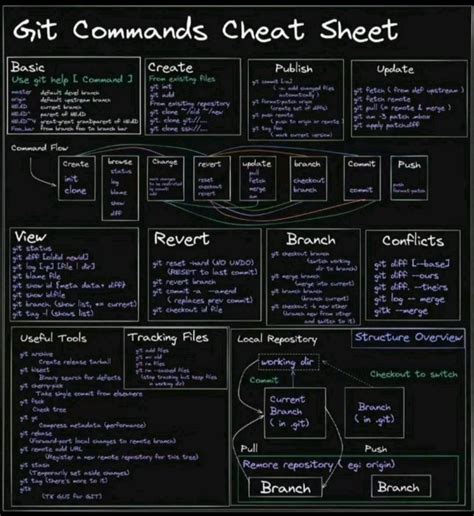 Git Commands Cheat Sheet
Basic
Use git help [ Command ]
master default devel branch
origin default upstream branch
HEAD current branch
HEAD^ parent of HEAD
HEAD~ great-great grandparent of HEAD
foo..bar from branch foo to branch bar
Create
From existing files
git init
git add
From existing repository
git clone ~/old ~/new
git clone git://...
git clone ssh://...
Publish
git commit [-a]
( -a add changed files
automatically )
git format-patch origin
(create set of diffs)
git push remote
( push to origin or remote )
git tag foo
( mark current version)
Update
git fetch ( from def upstream )
git fetch remote
git pull (= remote & merge )
git am -3 patch mbox
git apply patch.diff
Command Flow
Create
init
clone
browse
status
log
blame
show
diff
Change
revert
reset
checkout
revert
update
pull
fetch
merge
am
branch
checkout
branch
Commit
commit
Push
push
format-patch
View
git status
git diff [oldid newid]
git log [-p] [file | dir]
git blame file
git show id [meta data+ diff]
git show id:file
git branch (show list, * = current)
git tag -l (shows list)
Revert
git reset --hard (NO UNDO)
(RESET to last commit)
git revert branch
git commit -a --amend
( replaces prev commit)
git checkout id file
Branch
git checkout branch
(switch working
dir to branch)
git merge branch
(merge into current)
git branch branch
(branch current)
git checkout -b new other
(branch new from other
and switch to it)
Conflicts
git diff [--base]
git diff --ours
git diff --theirs
git log -- merge
gitk --merge
Useful Tools
git archive
Create release tarball
git bisect
Binary search for defects
git cherry-pick
Take single commit from elsewhere
git fsck
Check tree
git gc
Compress metadata (performance)
git rebase
(Forward-port local changes to remote branch)
git remote add URL
(Register a new remote repository for this tree)
git stash
(Temporarily set aside changes)
git tag (there's more to it)
gitk
(TK GUI for GIT)
Tracking Files
git add files
git mv old
git rm files
git rm --cached files
(stop tracking but keep files
in working dir)
Local Repository
Structure Overview
working dir
Commit
Checkout to switch
Current
Branch
( in .git)
Branch
( in .git)
Pull
Push
Remore repository ( eg: origin)
Branch
Branch